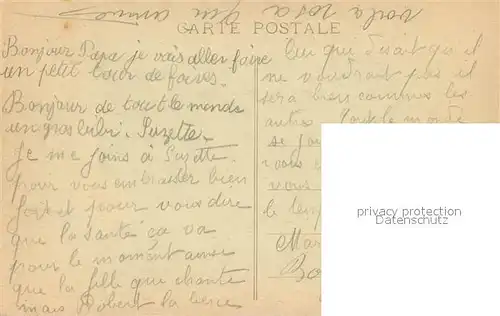 voila rosa qui arrive
CARTE POSTALE
Bonjour Papa je vais aller faire
un petit tour de foires.
Bonjour de tout le monde
un gros bibi. Suzette.
Je me joins à Suzette.
pour vous embrasser bien
fort et pour vous dire
que la santé ça va
pour le moment ainsi
que la fille que chante
mais Robert la berce
lui que disait qui il
ne voudrait pas il
sera bien comme les
autres tout le monde
se
vous
vous
le
privacy protection
Datenschutz